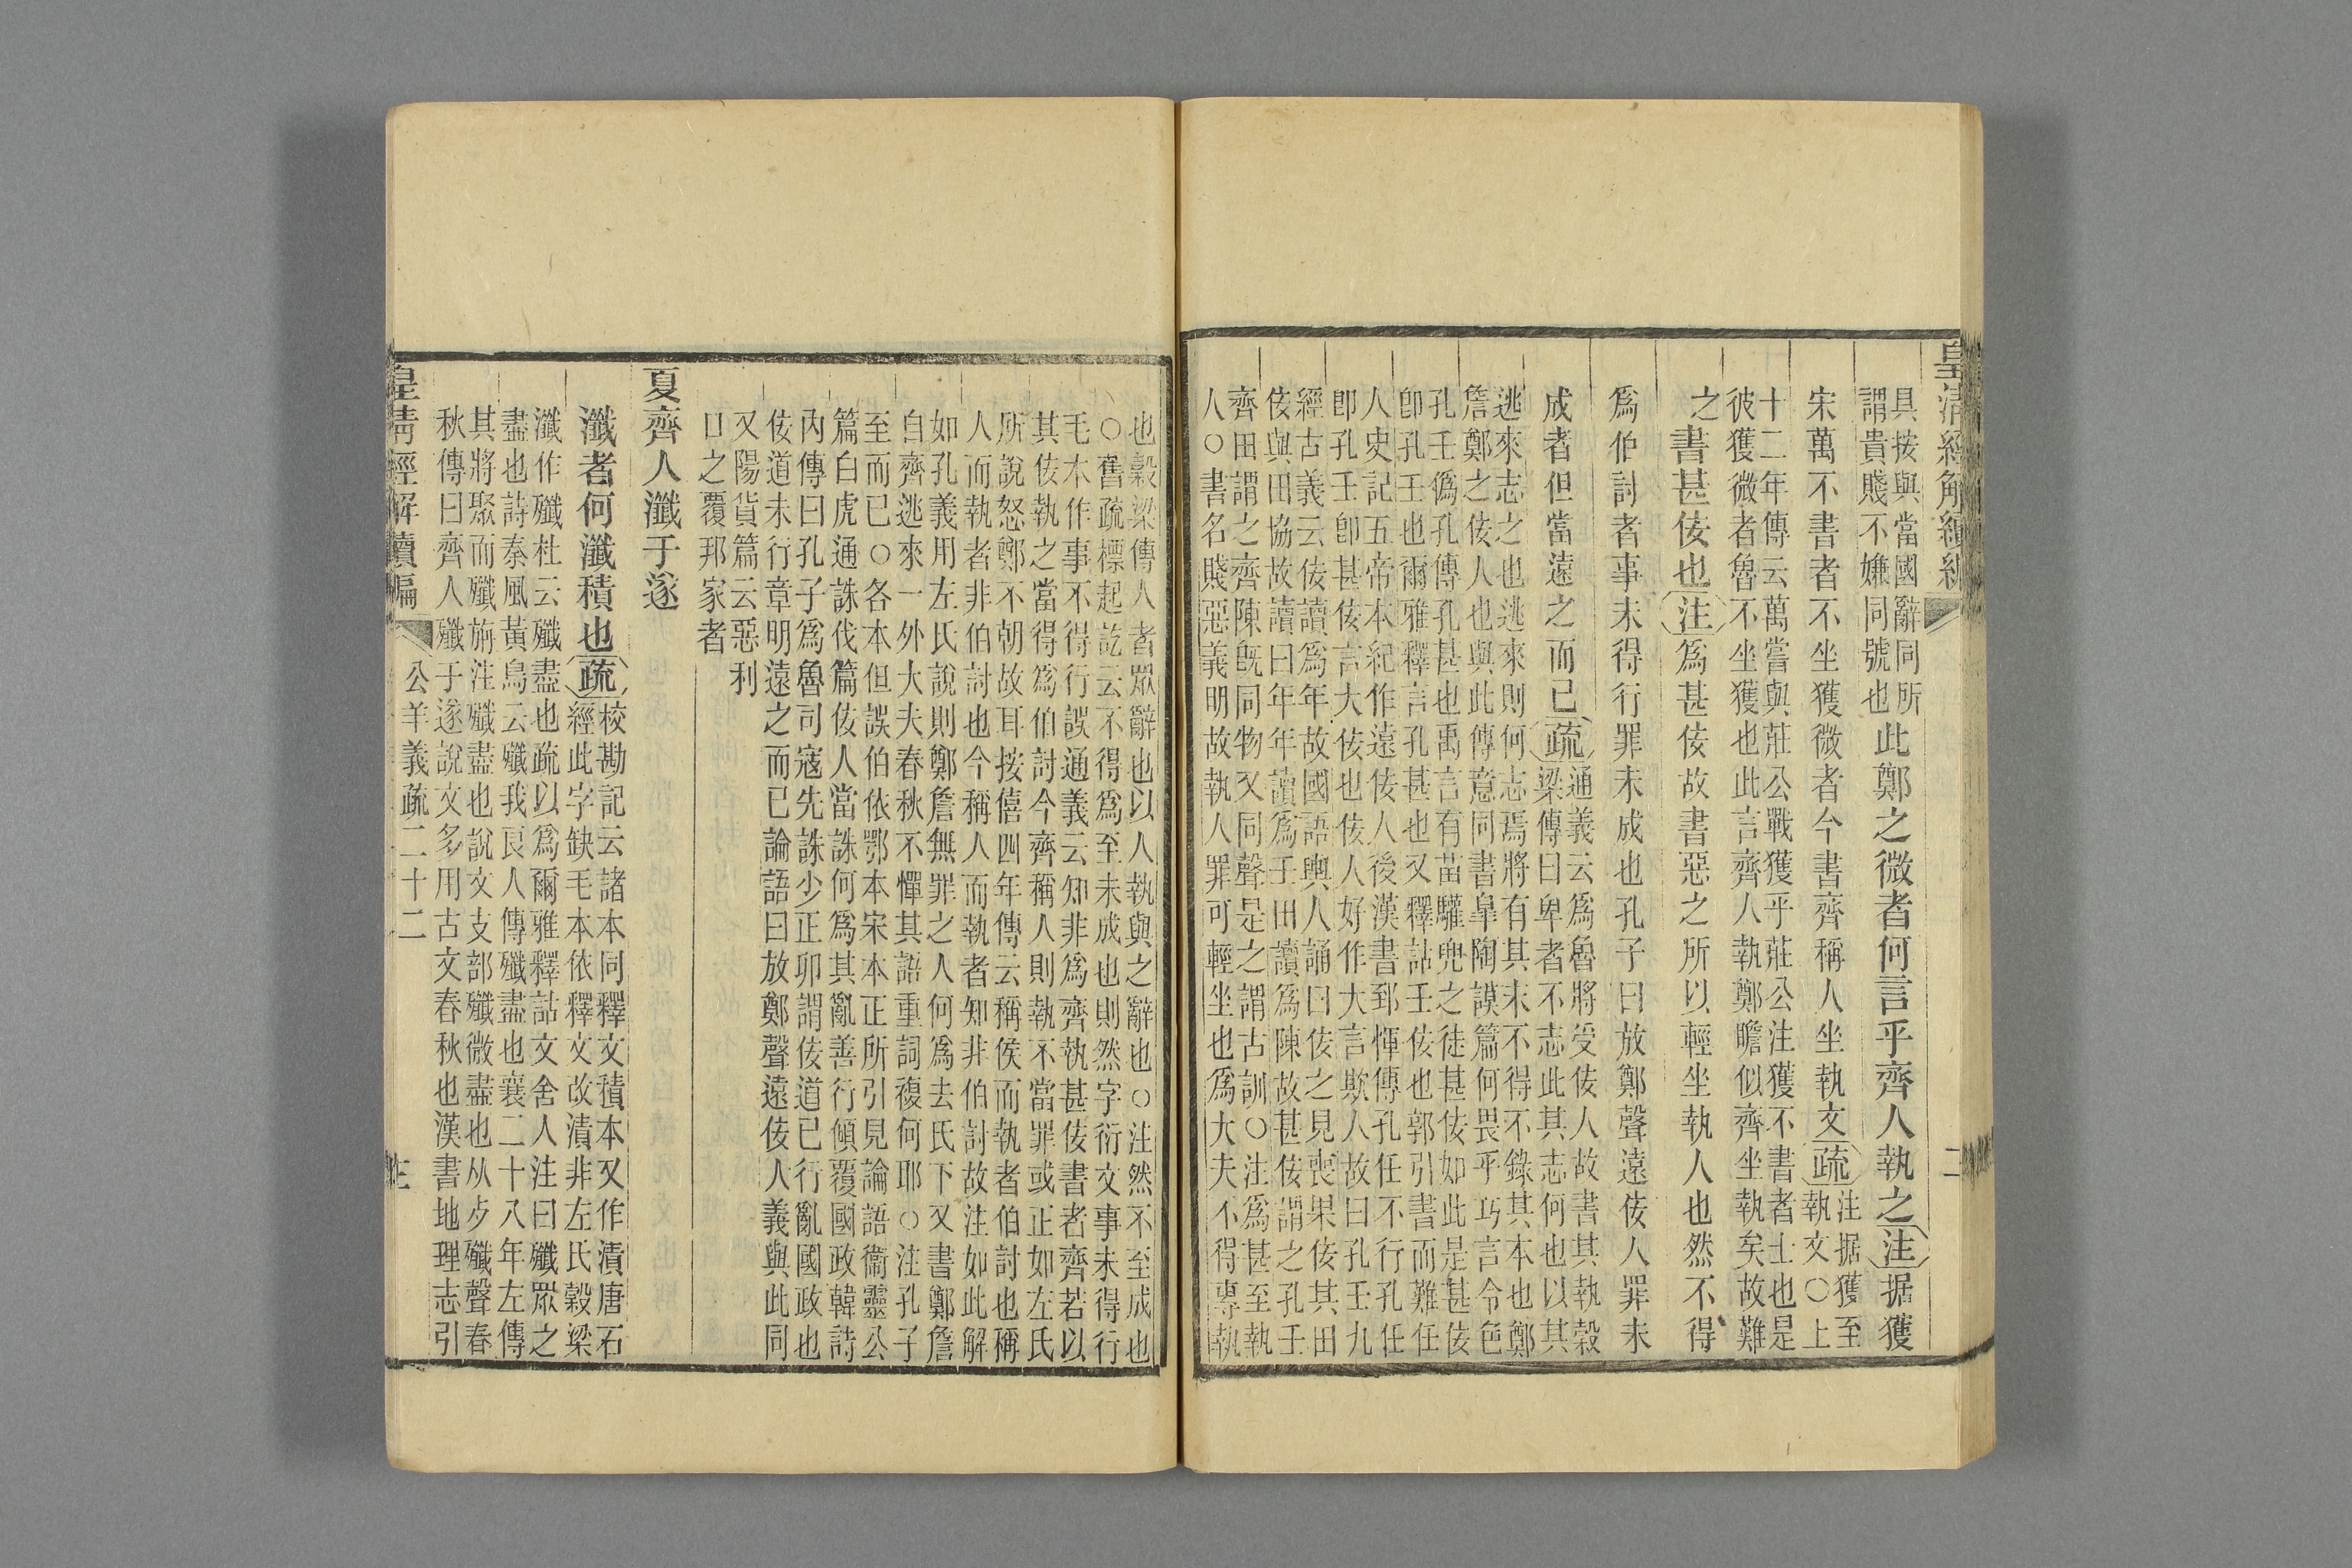 皇清經解續編
二
具按與當國辭同所
謂貴賤不嫌同號也
此鄭之微者何言乎齊人執之注据獲
宋萬不書者不坐獲微者今書齊稱人坐執文疏
注据獲至
執文〇上
十二年傳云萬嘗與莊公戰獲乎莊公注獲不書者士也是
彼獲微者魯不坐獲也此言齊人執鄭瞻似齊坐執矣故難
之
書甚佞也注爲甚佞故書惡之所以輕坐執人也然不得
爲伯討者事未得行罪未成也孔子曰放鄭聲遠佞人罪未
成者但當遠之而已疏
通義云爲魯將受佞人故書其執穀
梁傳曰卑者不志此其志何也以其
逃來志之也逃來則何志焉將有其末不得不錄其本也鄭
詹鄭之佞人也與此傳意同書皐陶謨篇何畏乎巧言令色
孔壬僞孔傳孔甚也禹言有苗驩兜之徒甚佞如此是甚佞
卽孔壬也爾雅釋言孔甚也又釋詁壬佞也郭引書而難任
人史記五帝本紀作遠佞人後漢書郅惲傳孔任不行孔任
卽孔壬卽甚佞言大佞也佞人好作大言欺人故曰孔壬九
經古義云佞讀爲年故國語輿人誦曰佞之見喪果佞其田
佞與田協故讀曰年年讀爲壬田讀爲陳故甚佞謂之孔壬
齊田謂之齊陳旣同物又同聲是之謂古訓〇注爲甚至執
人〇書名賤惡義明故執人罪可輕坐也爲大夫不得專執
也穀梁傳人者眾辭也以人執與之辭也〇注然不至成也
〇舊疏標起訖云不得爲至未成也則然字衍文事未得行
毛本作事不得行誤通義云知非爲齊執甚佞書者齊若以
其佞執之當得爲伯討今齊稱人則執不當罪或正如左氏
所說怒鄭不朝故耳按僖四年傳云稱侯而執者伯討也稱
人而執者非伯討也今稱人而執者知非伯討故注如此解
如孔義用左氏說則鄭詹無罪之人何爲去氏下又書鄭詹
自齊逃來一外大夫春秋不憚其語重詞複何耶〇注孔子
至而已〇各本但誤伯依鄂本宋本正所引見論語衞靈公
篇白虎通誅伐篇佞人當誅何爲其亂善行傾覆國政韓詩
內傳曰孔子爲魯司寇先誅少正卯謂佞道已行亂國政也
佞道未行章明遠之而已論語曰放鄭聲遠佞人義與此同
又陽貨篇云惡利
口之覆邦家者
夏齊人瀸于遂
瀸者何瀸積也疏
校勘記云諸本同釋文積本又作漬唐石
經此字缺毛本依釋文改漬非左氏穀梁
瀸作殲杜云殲盡也疏以爲爾雅釋詁文舍人注曰殲眾之
盡也詩秦風黃鳥云殲我良人傳殲盡也襄二十八年左傳
其將聚而殲旃注殲盡也說文攴部殲微盡也从歺韱聲春
秋傳曰齊人殲于遂說文多用古文春秋也漢書地理志引
皇清經解續編
公羊義疏二十二